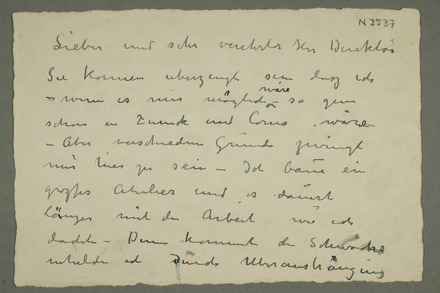 N 2537
Lieber und sehr verehrter Herr Direktor
Sie können überzeugt sein dass ich
wäre
– wenn es mir möglich – so gern
schon in Zürich und Como wäre
– Aber verschiedene Gründe zwingt
mir hier zu sein – Ich baue ein
grosses Atelier und es dauert
länger mit der Arbeit wie ich
dachte – Dann kommt die
ich